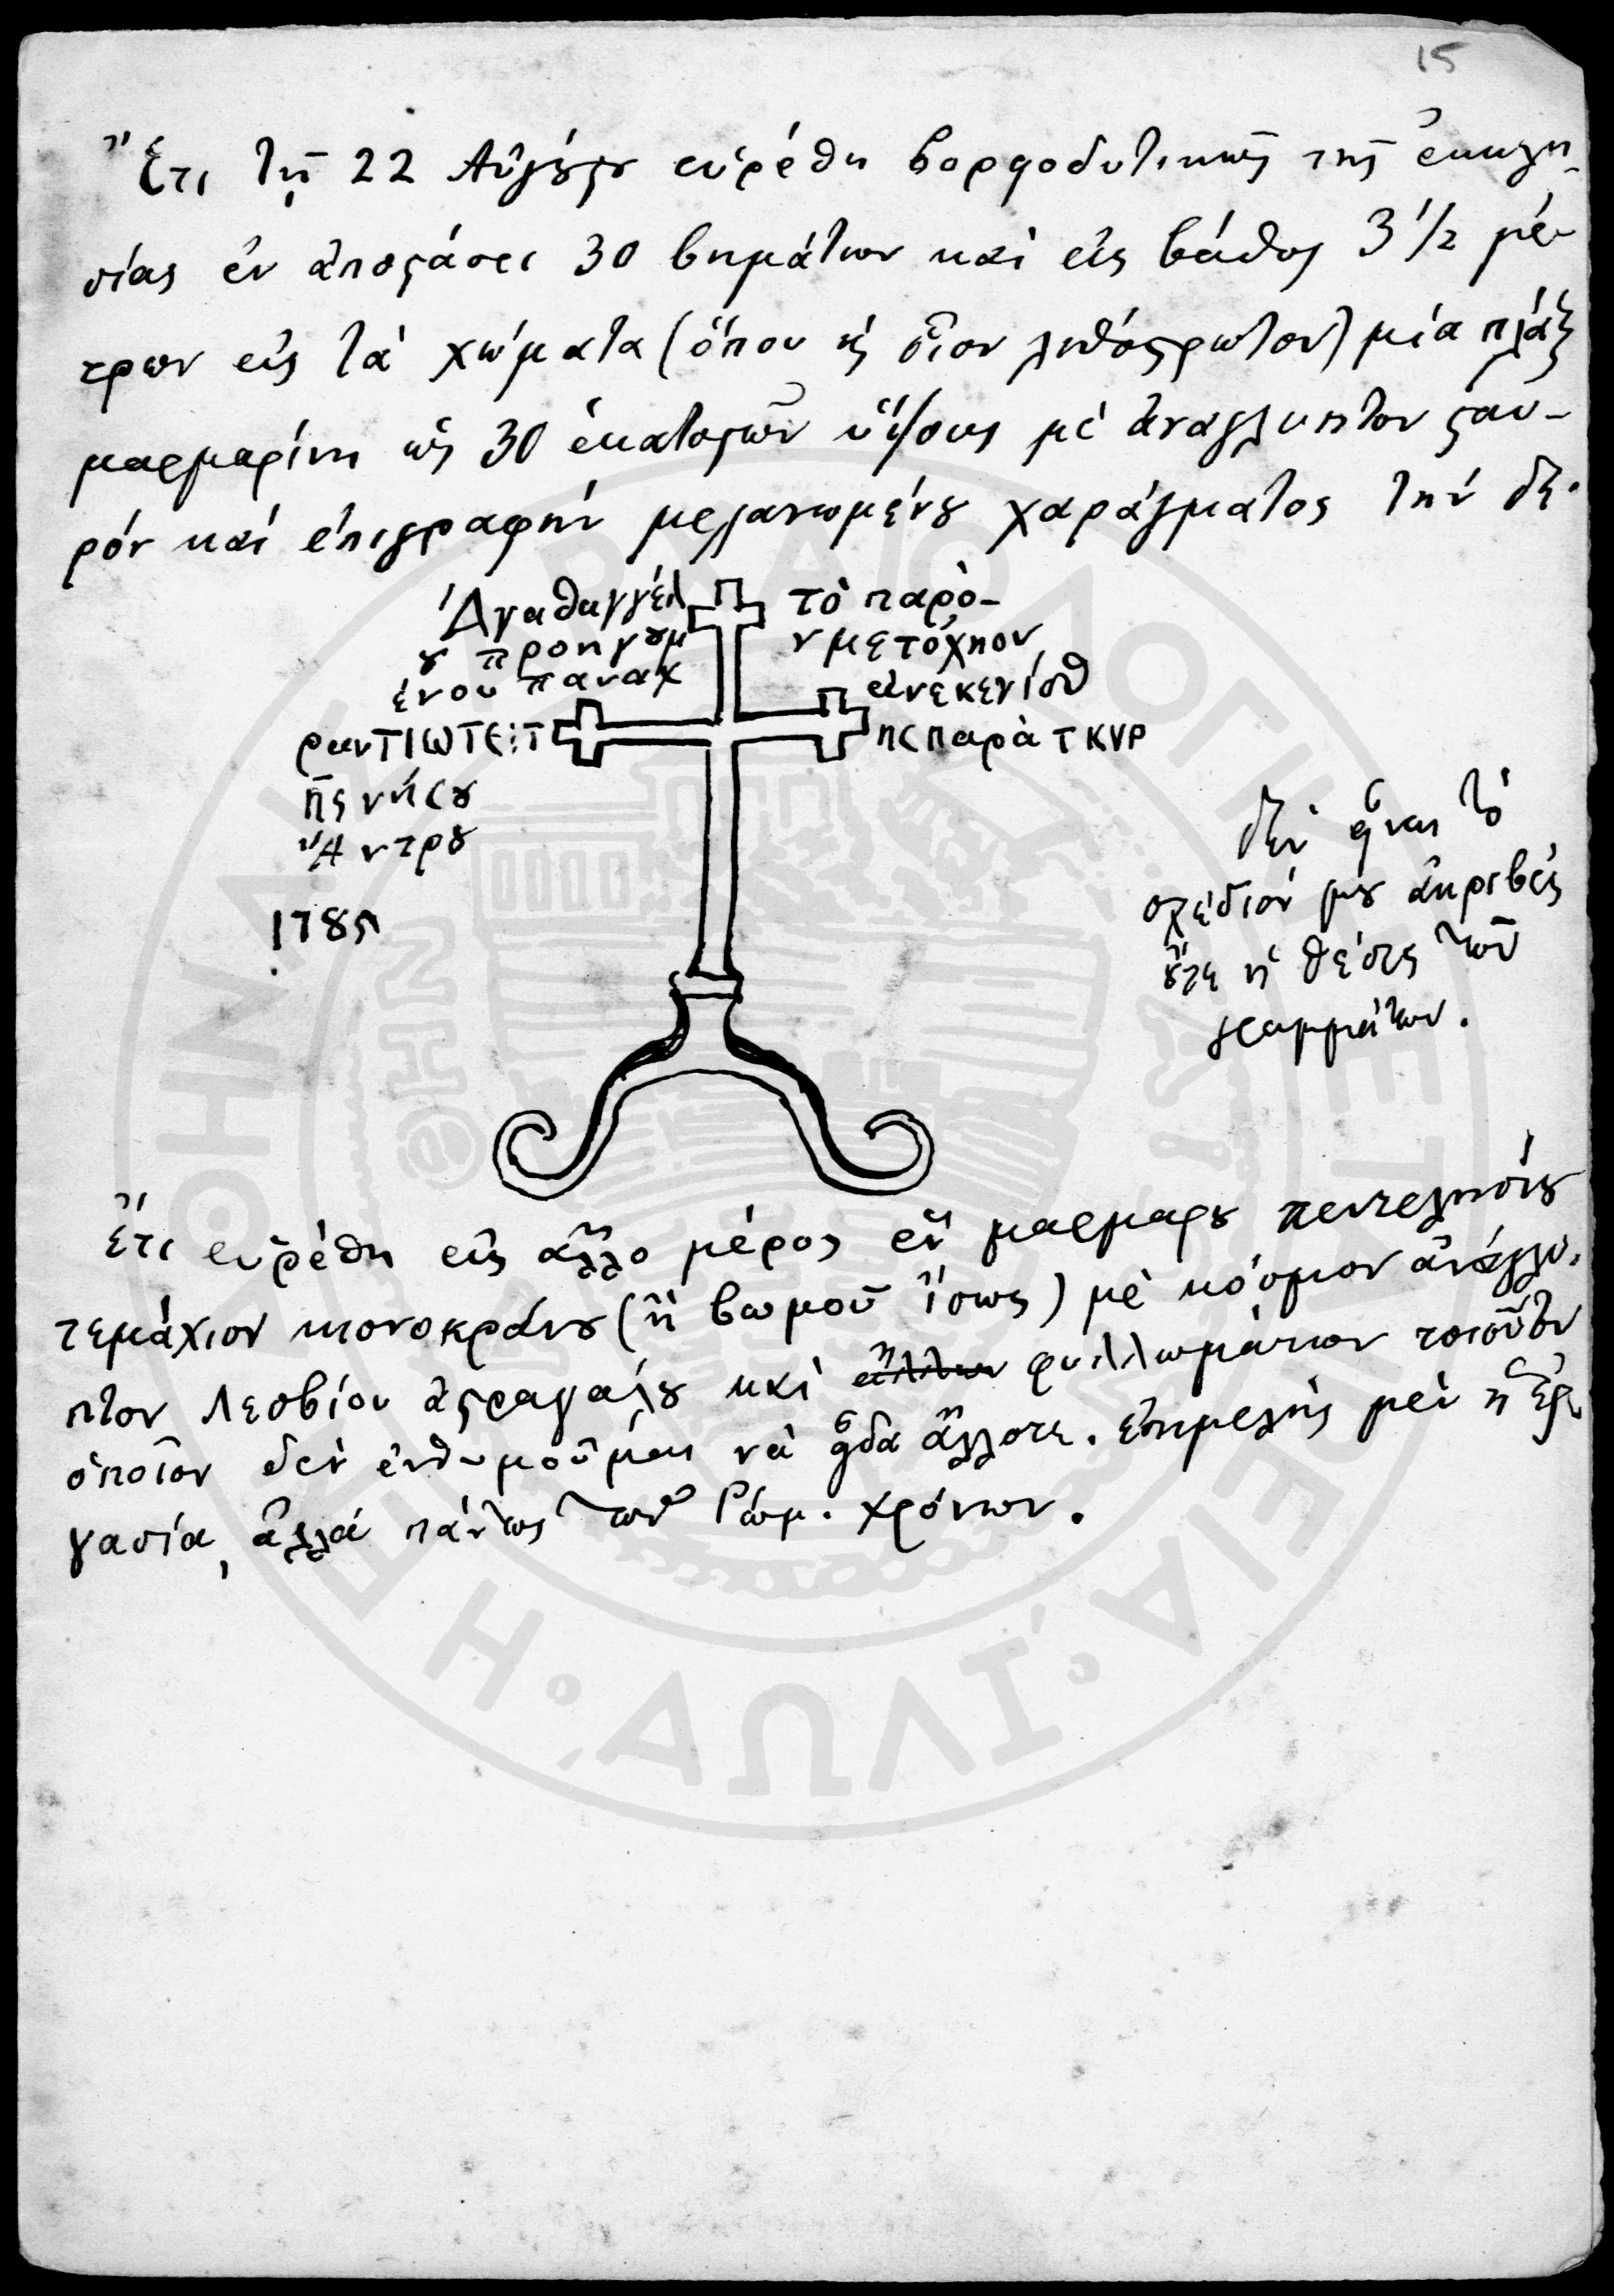 15
Ἔτι τῇ 22 Αὐγούστου εὑρέθη βορροδυτικῶς τῆς ἐκκλη-
σίας ἐν ἀποστάσει 30 βημάτων καὶ εἰς βάθος 3 1/2 μέ-
τρων εἰς τὰ χώματα (ὅπου ἦς οἷον λιθόστρωτον) μία πλάξ
μαρμαρίνη ὡς 30 ἑκατοστῶν ὕψους μὲ ἀνάγλυπτον σταυ-
ρόν καὶ ἐπιγραφὴν μελανωμένου χαράγματος τὴν δε.
Ἀγαθαγγέλ
ου προηγουμ
ένου παναχ
ρανΤΙΩΤΕ:Τ
ῆς νήσου
Ἄντρου
1785
τὸ παρὸ-
ν μετόχηον
ἀνεκενίσθ
ης παρὰ τ ΚΥΡ
δὲν εἶναι τὸ
σχέδιόν μου ἀκριβές
οὔτε ἡ θέσις τῶν
γραμμάτων.
Ἔτι εὑρέθη εἰς ἄλλο μέρος ἓν μαρμάρου πεντελησίου
τεμάχιον κιονοκράνου (ἢ βωμοῦ ἴσως) μὲ κόσμιον ἀνάγλυ-
πτον Λεσβίου ἀστραγάλου καὶ ἄλλων φυλλωμάτων τοιοῦτον
ὁποῖον δὲν ἐνθυμοῦμαι νὰ εἶδα ἄλλοτε. ἐπιμελής μὲν ἡ ἐρ-
γασία, ἀλλά πάντως τῶν Ῥωμ. χρόνων.